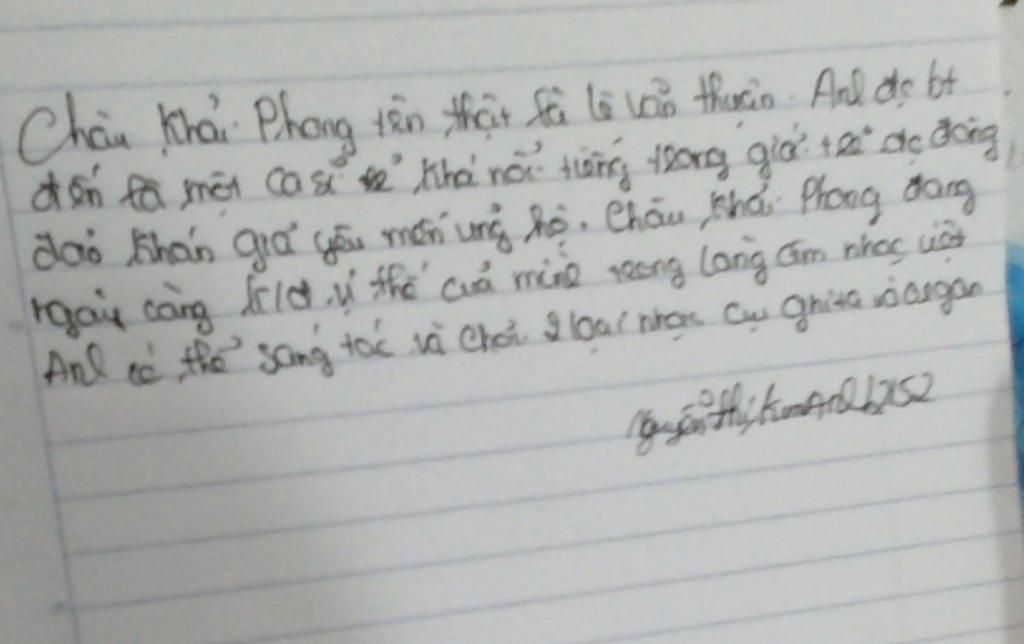 Châu Khải Phong tên thật là lê văn thuận. Anh đc bt
đến là một ca sĩ trẻ khá nổi tiếng trong giới trẻ đc đông
đảo khán giả yêu mến ủng hộ. Châu Khải Phong đang
ngày càng k/đ vị thế của mình trong làng âm nhạc việt
Anh có thể sáng tác và chơi 2 loại nhạc cụ ghita và organ
Nguyễn Thị Kim Anh